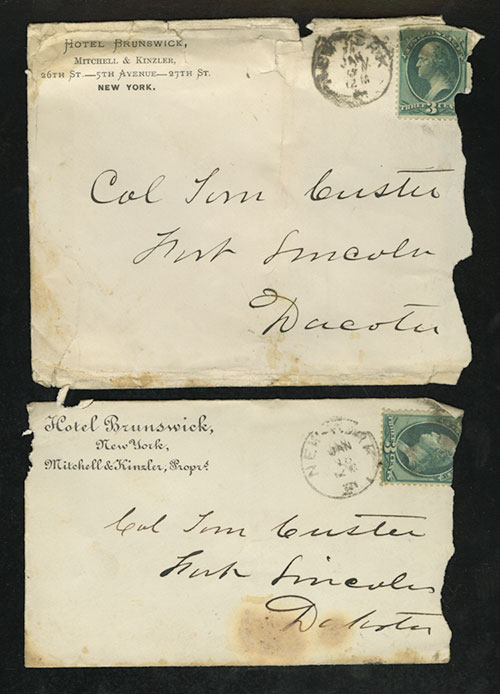 HOTEL BRUNSWICK,
MITCHELL & KINZLER,
26TH ST.—5TH AVENUE—27TH ST.
NEW YORK.
NEW YORK
JAN
THREE 3 CEN
Col Tom Custer
Fort Lincoln
Dacota
Hotel Brunswick,
New York,
Mitchell & Kinzler, Proprs.
NEW YORK
JAN
Col Tom Custer
Fort Lincoln
Dakota